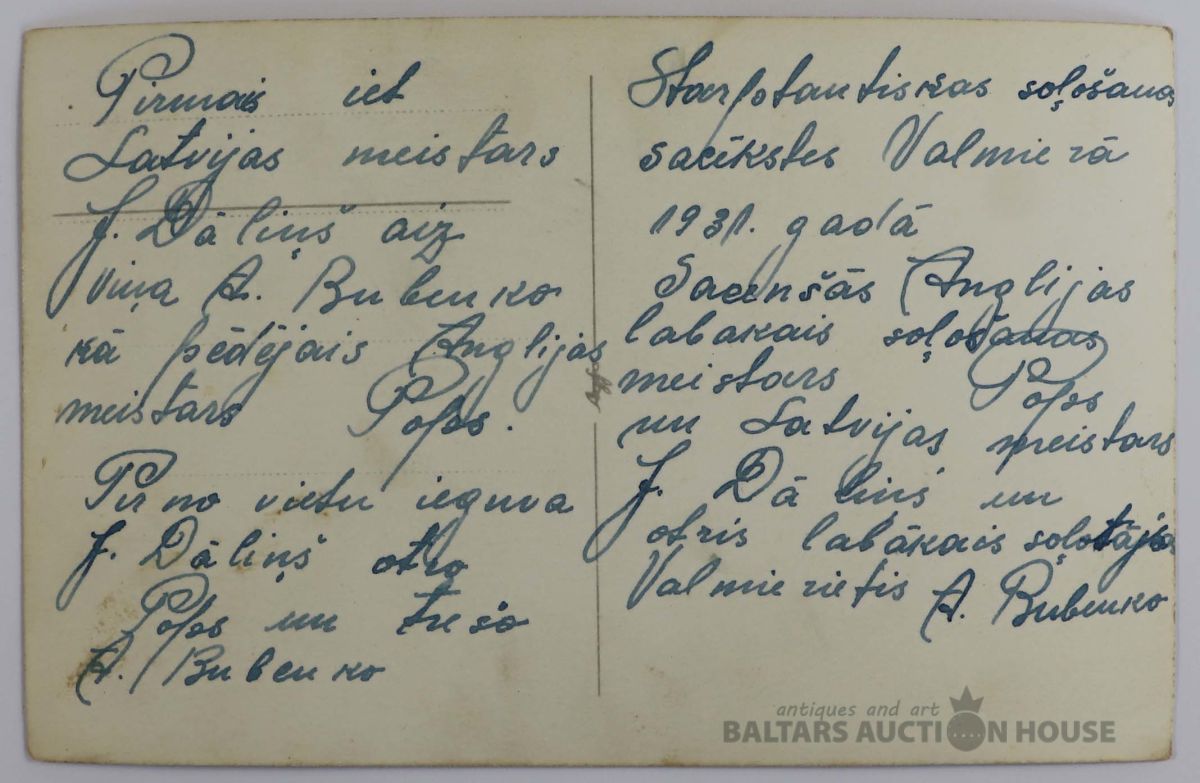 Pirmais iet
Latvijas meistars
J. Dāliņš aiz
Viņa A. Bubenko
kā pēdējais Anglijas
meistars Pops.
Pirmo vietu ieguva
J. Dāliņš otro
Pops un trešo
A. Bubenko
Starptautiskas soļošanas
sacīkstes Valmierā
1931. gadā
Sacenšās Anglijas
labākais soļošanas
meistars Pops
un Latvijas meistars
J. Dāliņš un
otris labākais soļotājs
Valmierietis A. Bubenko
antiques and art
BALTARS AUCTION HOUSE